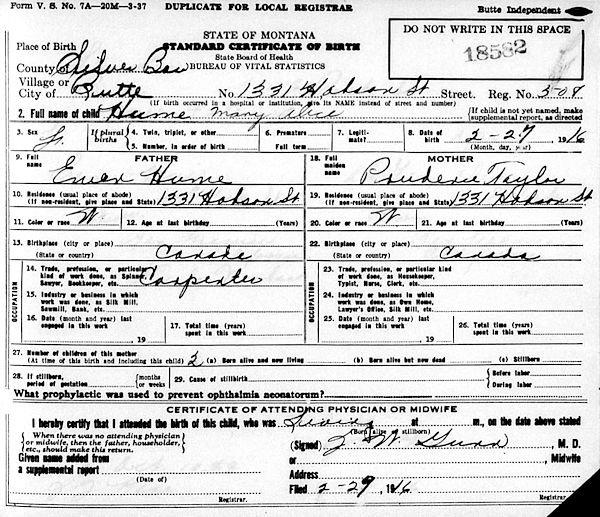 Form V. S. No. 7A—20M—3-37 DUPLICATE FOR LOCAL REGISTRAR Butte Independent
STATE OF MONTANA
DO NOT WRITE IN THIS SPACE
Place of Birth STANDARD CERTIFICATE OF BIRTH
18582
State Board of Health
County Silver Bow BUREAU OF VITAL STATISTICS
Village or
City of Butte No. 1331 Hobson St Street. Reg. No. 509
(If birth occurred in a hospital or institution, give its NAME instead of street and number)
2. Full name of child Hume Mary Alice
If child is not yet named, make supplemental report, as directed
3. Sex f. If plural births 4. Twin, triplet, or other 6. Premature 7. Legitimate? 8. Date of birth 2-27 1916
5. Number, in order of birth Full term (Month, day, year)
FATHER
9. Full name Emer Hume
MOTHER
18. Full maiden name Prudence Taylor
10. Residence (usual place of abode) (If non-resident, give place and State) 1331 Hobson St
19. Residence (usual place of abode) (If non-resident, give place and State) 1331 Hobson St
11. Color or race W 12. Age at last birthday (Years)
20. Color or race W 21. Age at last birthday (Years)
13. Birthplace (city or place)
(State or country) Canada
22. Birthplace (city or place)
(State or country) Canada
OCCUPATION
14. Trade, profession, or particular kind of work done, as Spinner, Sawyer, Bookkeeper, etc. Carpenter
15. Industry or business in which work was done, as Silk Mill, Sawmill, Bank, etc.
16. Date (month and year) last engaged in this work , 19
17. Total time (years) spent in this work
OCCUPATION
23. Trade, profession, or particular kind of work done, as Housekeeper, Typist, Nurse, Clerk, etc.
24. Industry or business in which work was done, as Own Home, Lawyer's Office, Silk Mill, etc.
25. Date (month and year) last engaged in this work , 19
26. Total time (years) spent in this work
27. Number of children of this mother
(At time of this birth and including this child) 2 (a) Born alive and now living (b) Born alive but now dead (c) Stillborn
28. If stillborn, period of gestation months or weeks 29. Cause of stillbirth Before labor
During labor
What prophylactic was used to prevent ophthalmia neonatorum?
CERTIFICATE OF ATTENDING PHYSICIAN OR MIDWIFE
I hereby certify that I attended the birth of this child, who was living at m., on the date above stated
(Born alive or stillborn)
When there was no attending physician or midwife, then the father, householder, etc., should make this return.
(Signed) Z W Gunn, M. D.
or , Midwife
Given name added from
a supplemental report
(Date of)
Address
Filed 2-29, 1916
Registrar. Registrar.